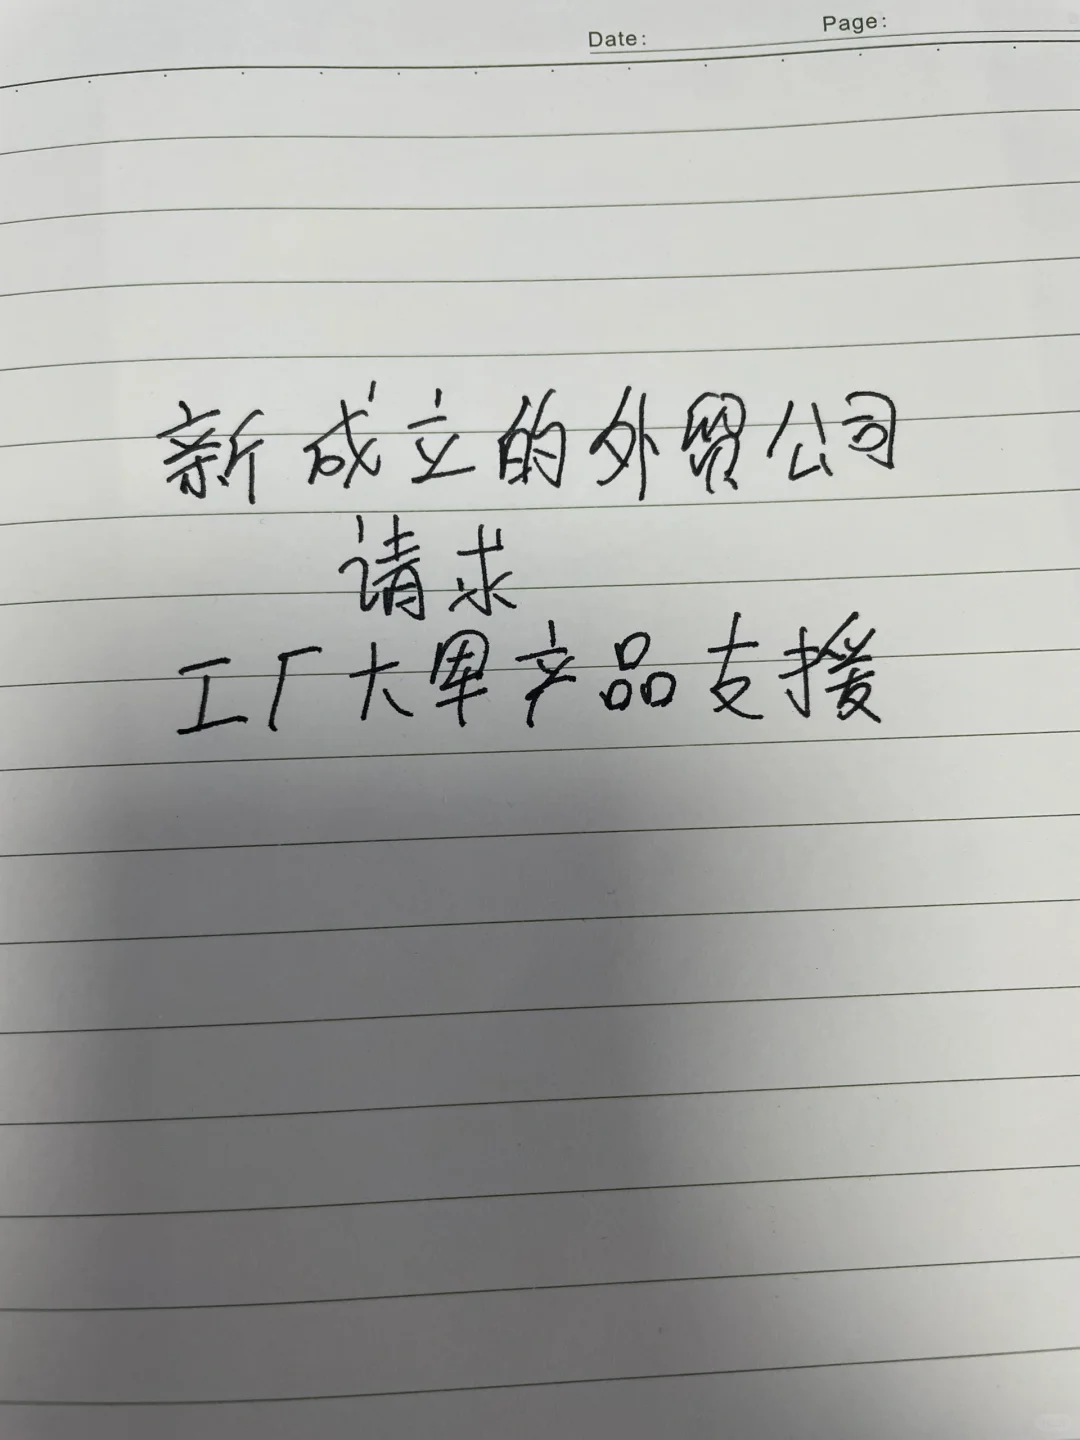 Date:
Page:
新成立的外贸公司
请求
工厂大军产品支援